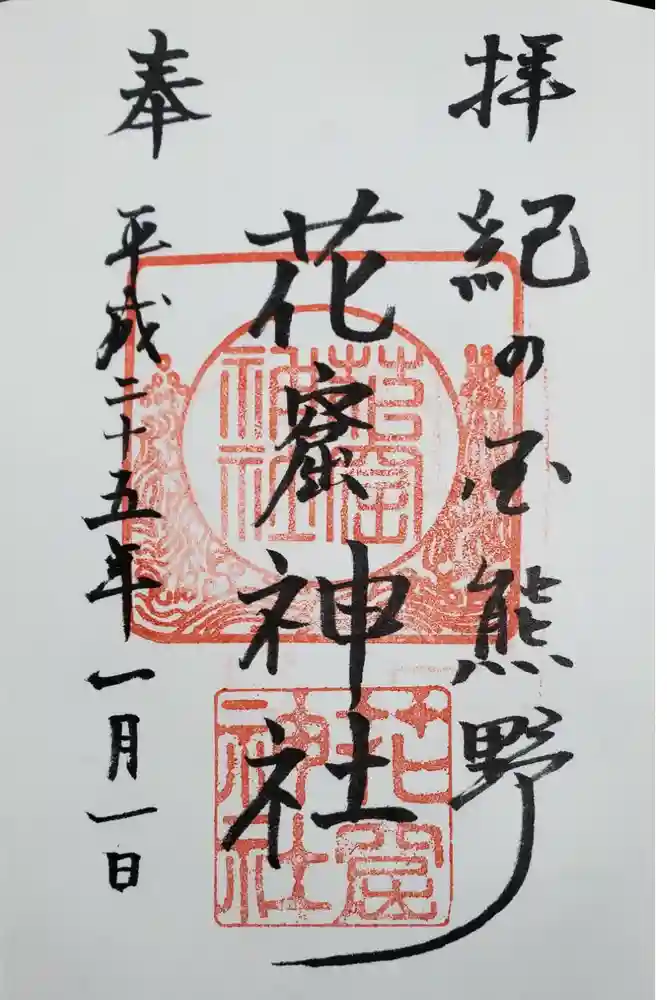 拝
紀の国熊野
花窟神社
奉
平成二十五年一月一日
花窟
神社
花窟
神社